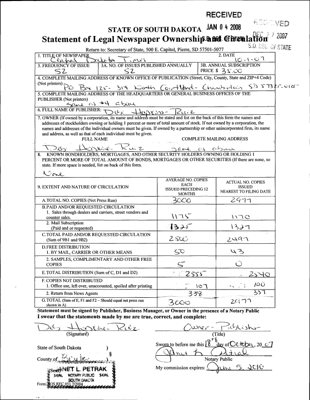 RECEIVED
JAN 04 2008
STATE OF SOUTH DAKOTA
Statement of Legal Newspaper Ownership and Circulation
Return to: Secretary of State, 500 E. Capitol, Pierre, SD 57501-5077
1. TITLE OF NEWSPAPER
2. DATE
Central Dakota Times
10-1-07
3. FREQUENCY OF ISSUE
3A. NO. OF ISSUES PUBLISHED ANNUALLY
3B. ANNUAL SUBSCRIPTION
52
52
PRICE $ 35.00
4. COMPLETE MAILING ADDRESS OF KNOWN OFFICE OF PUBLICATION (Street, City, County, State and ZIP+4 Code)
(Not printers)
PO Box 125
5. COMPLETE MAILING ADDRESS OF THE HEADQUARTERS OR GENERAL BUSINESS OFFICES OF THE
PUBLISHER (Not printers)
same as #4 above
6. FULL NAME OF PUBLISHER:
7. OWNER (If owned by a corporation, its name and address must be stated and list on the back of this form the names and
addresses of stockholders owning or holding 1 percent or more of total amount of stock. If not owned by a corporation, the
names and addresses of the individual owners must be given. If owned by a partnership or other unincorporated firm, its name
and address, as well as that of each individual must be given.
FULL NAME
COMPLETE MAILING ADDRESS
same as above
8. KNOWN BONDHOLDERS, MORTGAGES, AND OTHER SECURITY HOLDERS OWNING OR HOLDING 1
PERCENT OR MORE OF TOTAL AMOUNT OF BONDS, MORTGAGES OR OTHER SECURITIES (If there are none, so
state. If more space is needed, list on back of this form.
None
9. EXTENT AND NATURE OF CIRCULATION
AVERAGE NO. COPIES
EACH
ISSUED PRECEDING 12
MONTHS
ACTUAL NO. COPIES
ISSUED
NEAREST TO FILING DATE
A. TOTAL NO. COPIES (Net Press Run)
3000
2977
B. PAID AND/OR REQUESTED CIRCULATION
1. Sales through dealers and carriers, street vendors and
counter sales.
1175
1170
2. Mail Subscription
(Paid and or requested)
1325
1327
C. TOTAL PAID AND/OR REQUESTED CIRCULATION
(Sum of 9B1 and 9B2)
2500
2497
D. FREE DISTRIBUTION
1. BY MAIL, CARRIER OR OTHER MEANS
50
43
2. SAMPLES, COMPLIMENTARY AND OTHER FREE
COPIES
5
0
E. TOTAL DISTRIBUTION (Sum of C, D1 and D2)
2555
2540
F. COPIES NOT DISTRIBUTED
1. Office use, left over, unaccounted, spoiled after printing
107
100
2. Return from News Agents
338
337
G. TOTAL (Sum of E, F1 and F2 - Should equal net press run
shown in A)
3000
2977
Statement must be signed by Publisher, Business Manager, or Owner in the presence of a Notary Public
I swear that the statements made by me are true, correct, and complete:
Owner - Publisher
(Signature)
(Title)
State of South Dakota )
Sworn to before me this 18 day of October, 2007
County of Brule )
Janet L Petrak
Notary Public
JANET L. PETRAK
SEAL NOTARY PUBLIC SEAL
SOUTH DAKOTA
My commission expires: June 5, 2010